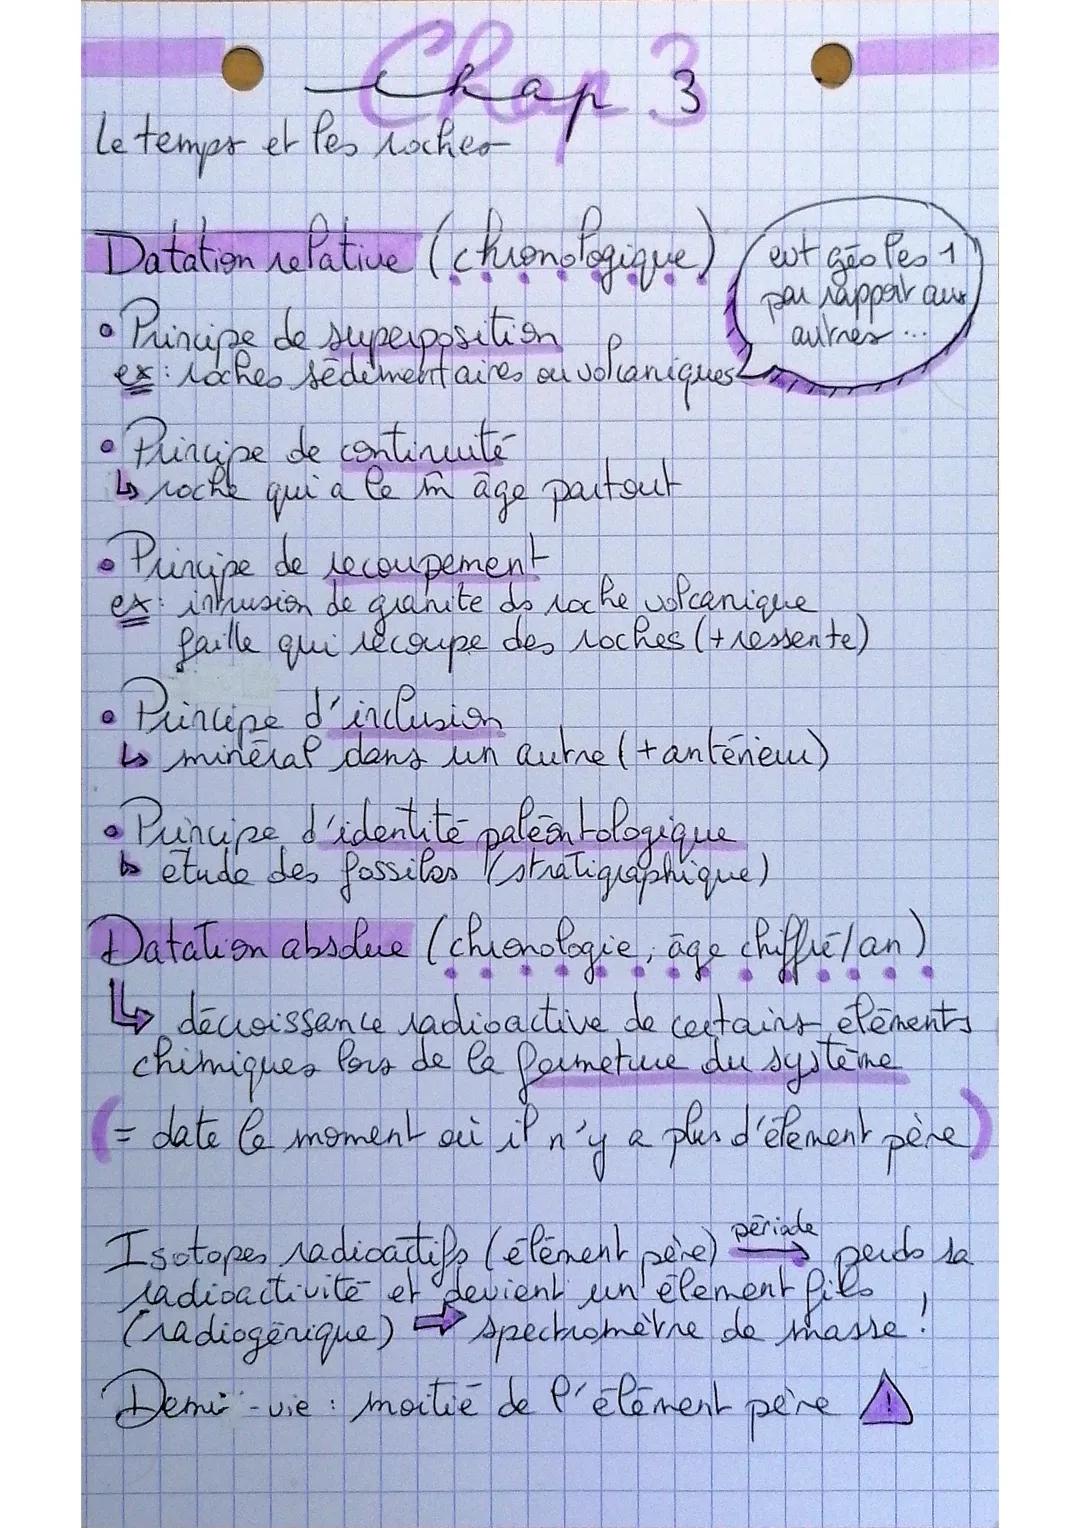 Chap 3
Le temps et les roches
Datation relative (chronologique)
evt géo les 1
par rapport aux
autres ...
• Principe de superposition
ex : roches sédimentaires ou volcaniques
• Principe de continuité
↳ roche qui a le m̂ âge partout
• Principe de recoupement
ex : intrusion de granite ds roche volcanique
faille qui recoupe des roches (+ ressente)
• Principe d'inclusion
↳ minéral dans un autre (+ antérieur)
• Principe d'identité paléontologique
↳ étude des fossiles (stratigraphique)
Datation absolue (chronologie, âge chiffré/an)
↳ décroissance radioactive de certains éléments
chimiques lors de la fermeture du système
(= date le moment où il n'y a plus d'élement père)
Isotopes radioactifs (élément père) période → perds sa
radioactivité et devient un élement fils
(radiogénique) ⇒ spectromètre de masse !
Demi-vie : moitié de l'élément père ⚠